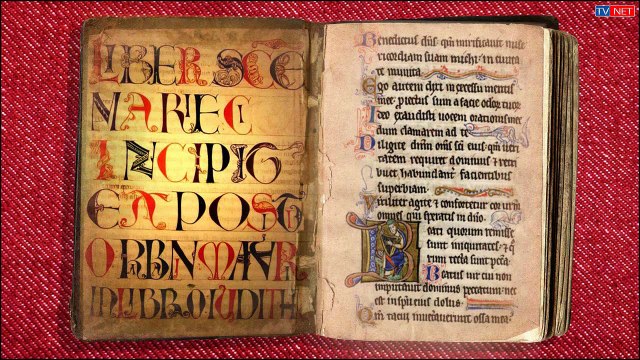 TV NET
LIBER SCE
MARIE CI
INCIPIT
EXPOSITI
O RBNI MAVR
IN LIBRO IUDITH
Benedictus dns qm mirificauit mise
ricordiam suam michi in ciuita
te munita
Ego autem dixi in excessu menti
mee proiectus sum a facie oclor tuor
Ideo exaudisti uocem orationis mee
dum clamarem ad te
Diligite dnm oms sci eius qm ueri
tatem requiret dominus & retri
buet habundant facientibus
superbiam
Viriliter agite & confortetur cor urm
omnes qui speratis in dno
Beati quorum remisse
sunt iniquitates & q
rum tecta sunt pcca
Beatus uir cui non
imputauit dominus peccatum nec
est in spu eius dolus
Qm tacui inueterauerunt ossa mea